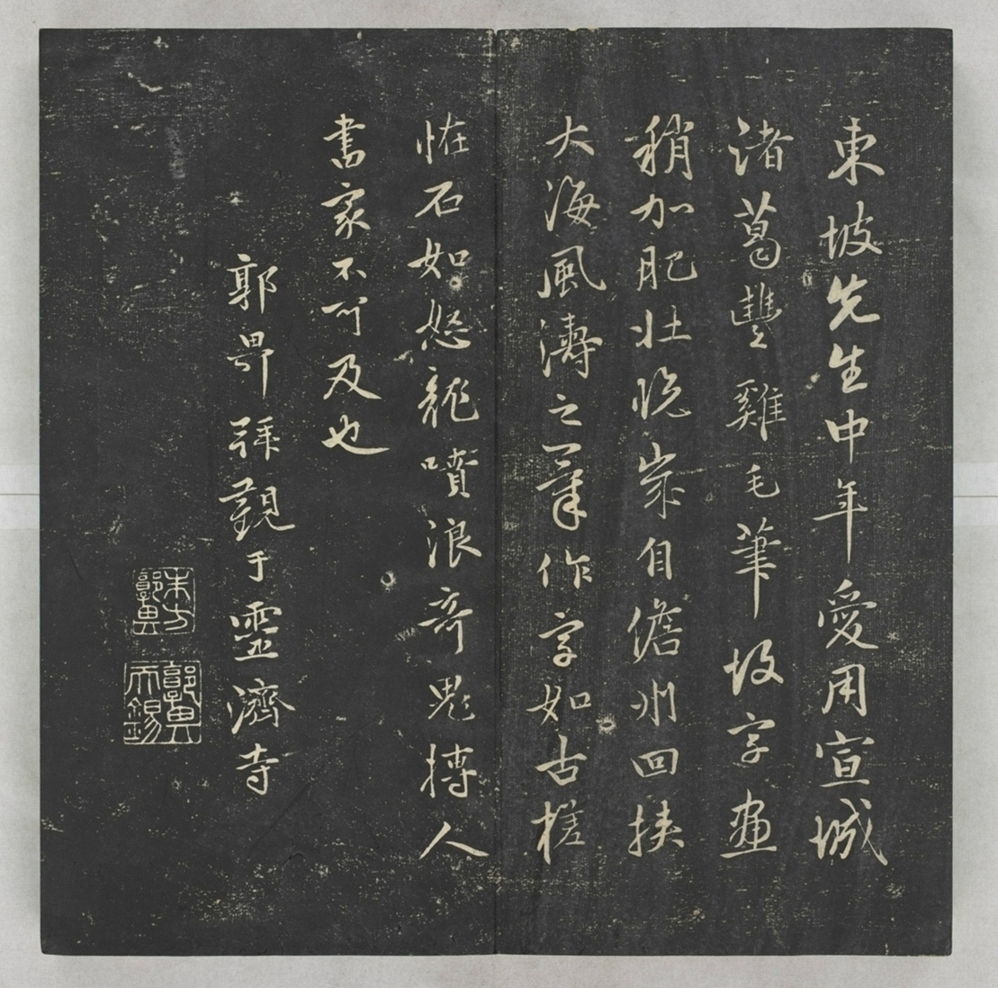 東坡先生中年愛用宣城
諸葛豐雞毛筆故字畫
稍加肥壯晚歲自儋州回挾
大海風濤之氣作字如古槎
恠石如怒龍噴浪奇鬼搏人
書家不可及也
郭畀拜觀于靈濟寺
朱方郭畀
郭畀天錫